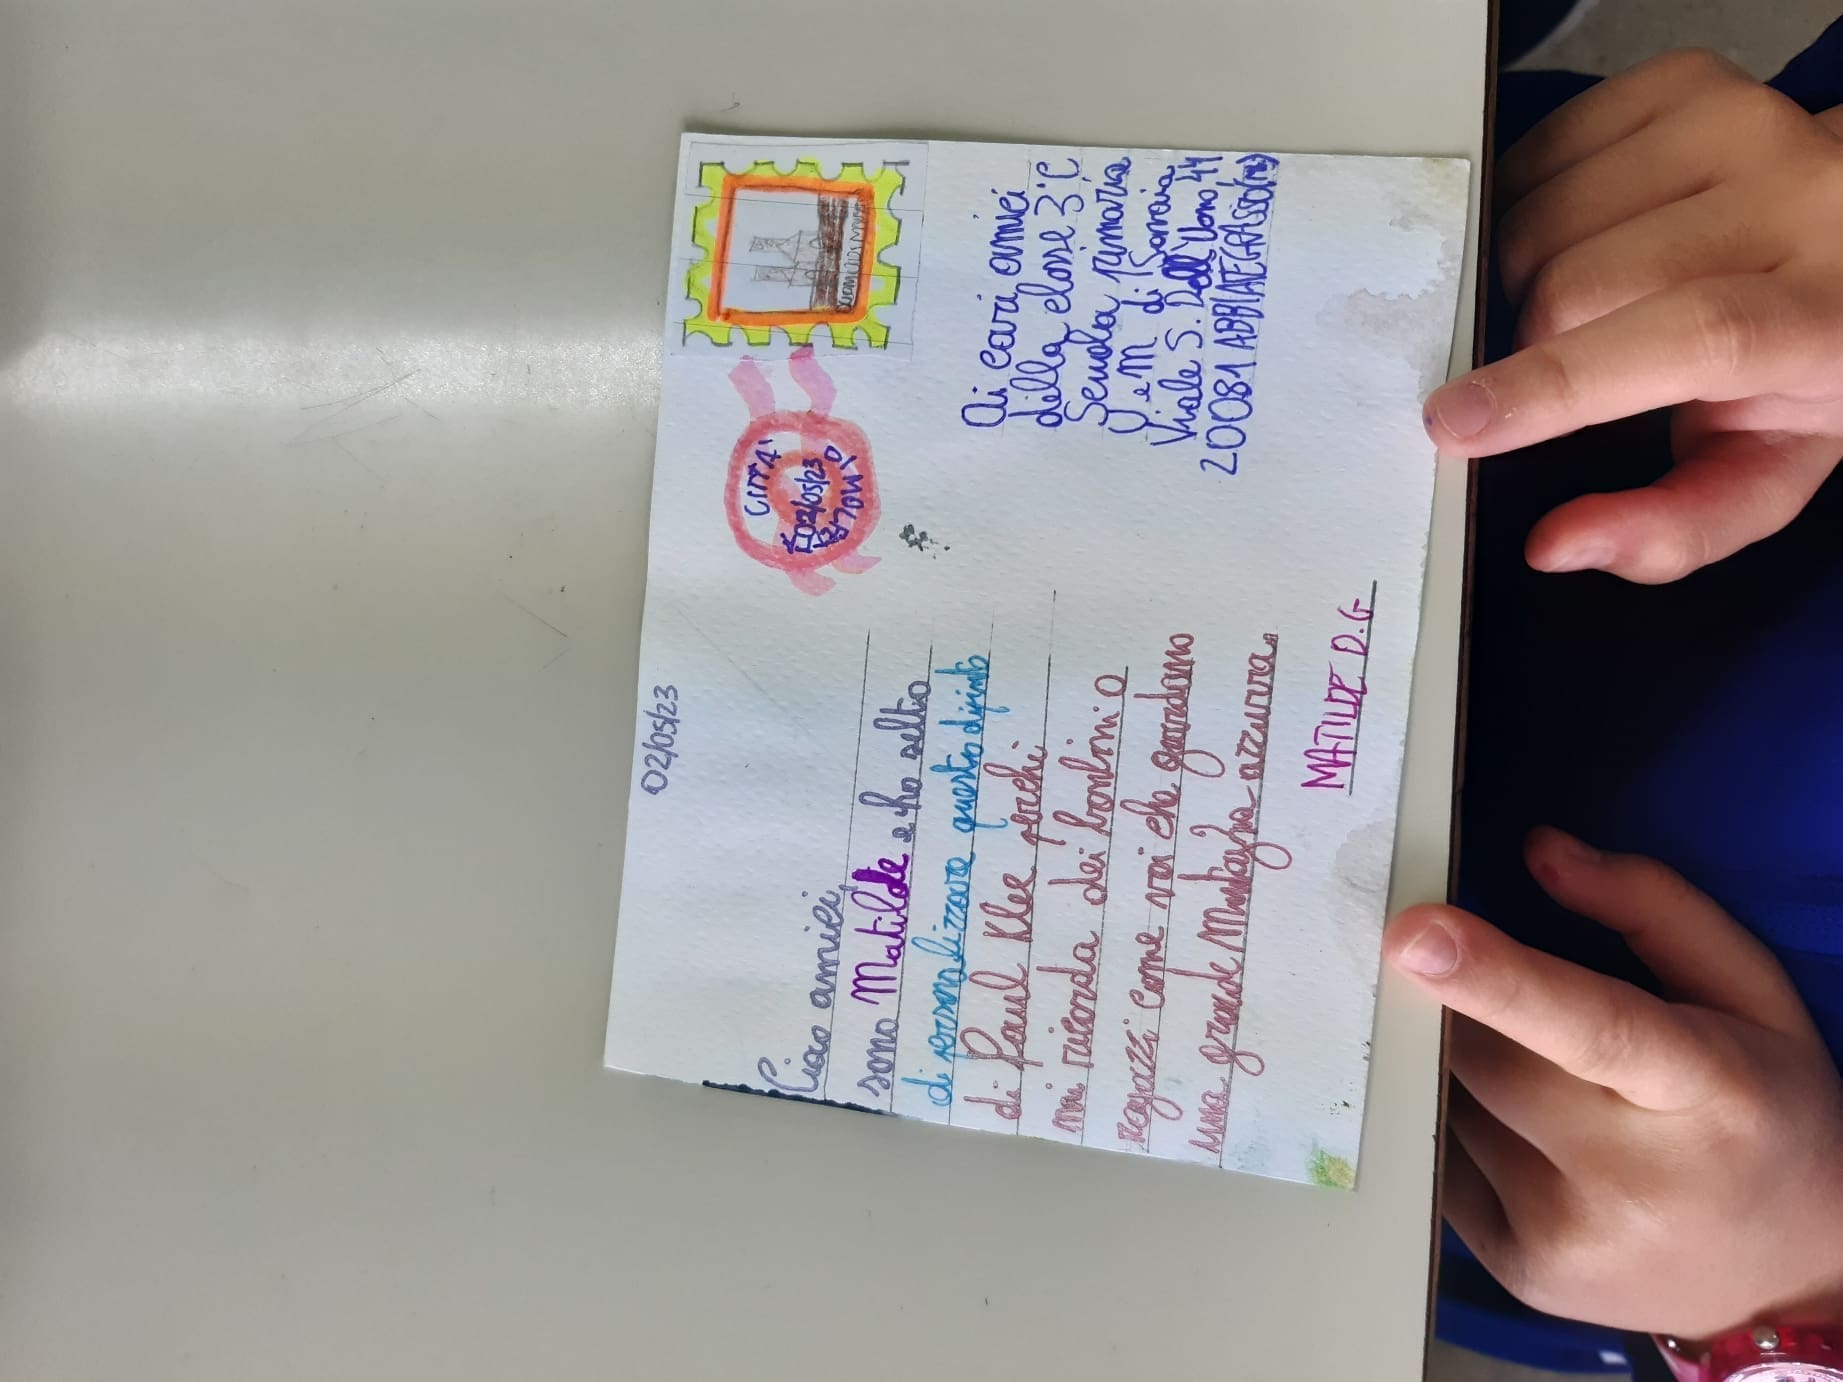 02/05/23
Ciao amici,
sono Matilde e ho selto
di personalizzare questo dipinto
di Paul Klee perchi
mi ricorda dei bambini o
ragazzi come voi che guardano
una grande Montagna azzurra.
MATILDE D.G
CITTÀ
02/05/23
Ai cari amici
della classe 3°C
Scuola Primaria
U e M di Savoia
Viale S. Dell'Uomo 44
20081 ABBIATEGRASSO(MI)